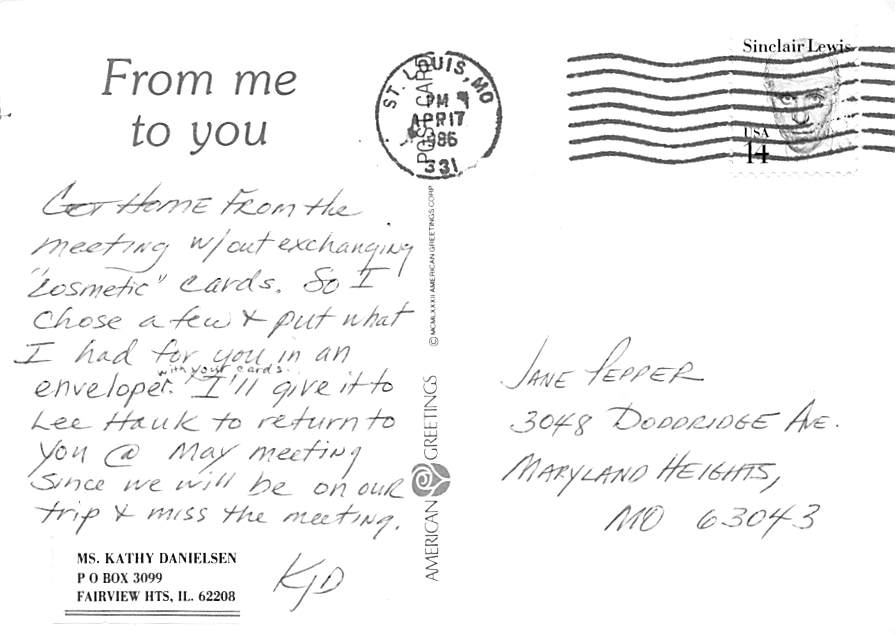 From me
to you
ST. LOUIS, MO
PM
APR 17
1986
331
POST CARD
Sinclair Lewis
USA
14
Got Home From the
meeting w/out exchanging
"Cosmetic" cards. So I
chose a few & put what
I had for you in an
with your cards.
envelope. I'll give it to
Lee Hauk to return to
you @ May meeting
since we will be on our
trip & miss the meeting.
KJD
MS. KATHY DANIELSEN
P O BOX 3099
FAIRVIEW HTS, IL. 62208
© MCMLXXXII AMERICAN GREETINGS CORP
AMERICAN GREETINGS
JANE PEPPER
3048 DODDRIDGE AVE.
MARYLAND HEIGHTS,
MO 63043